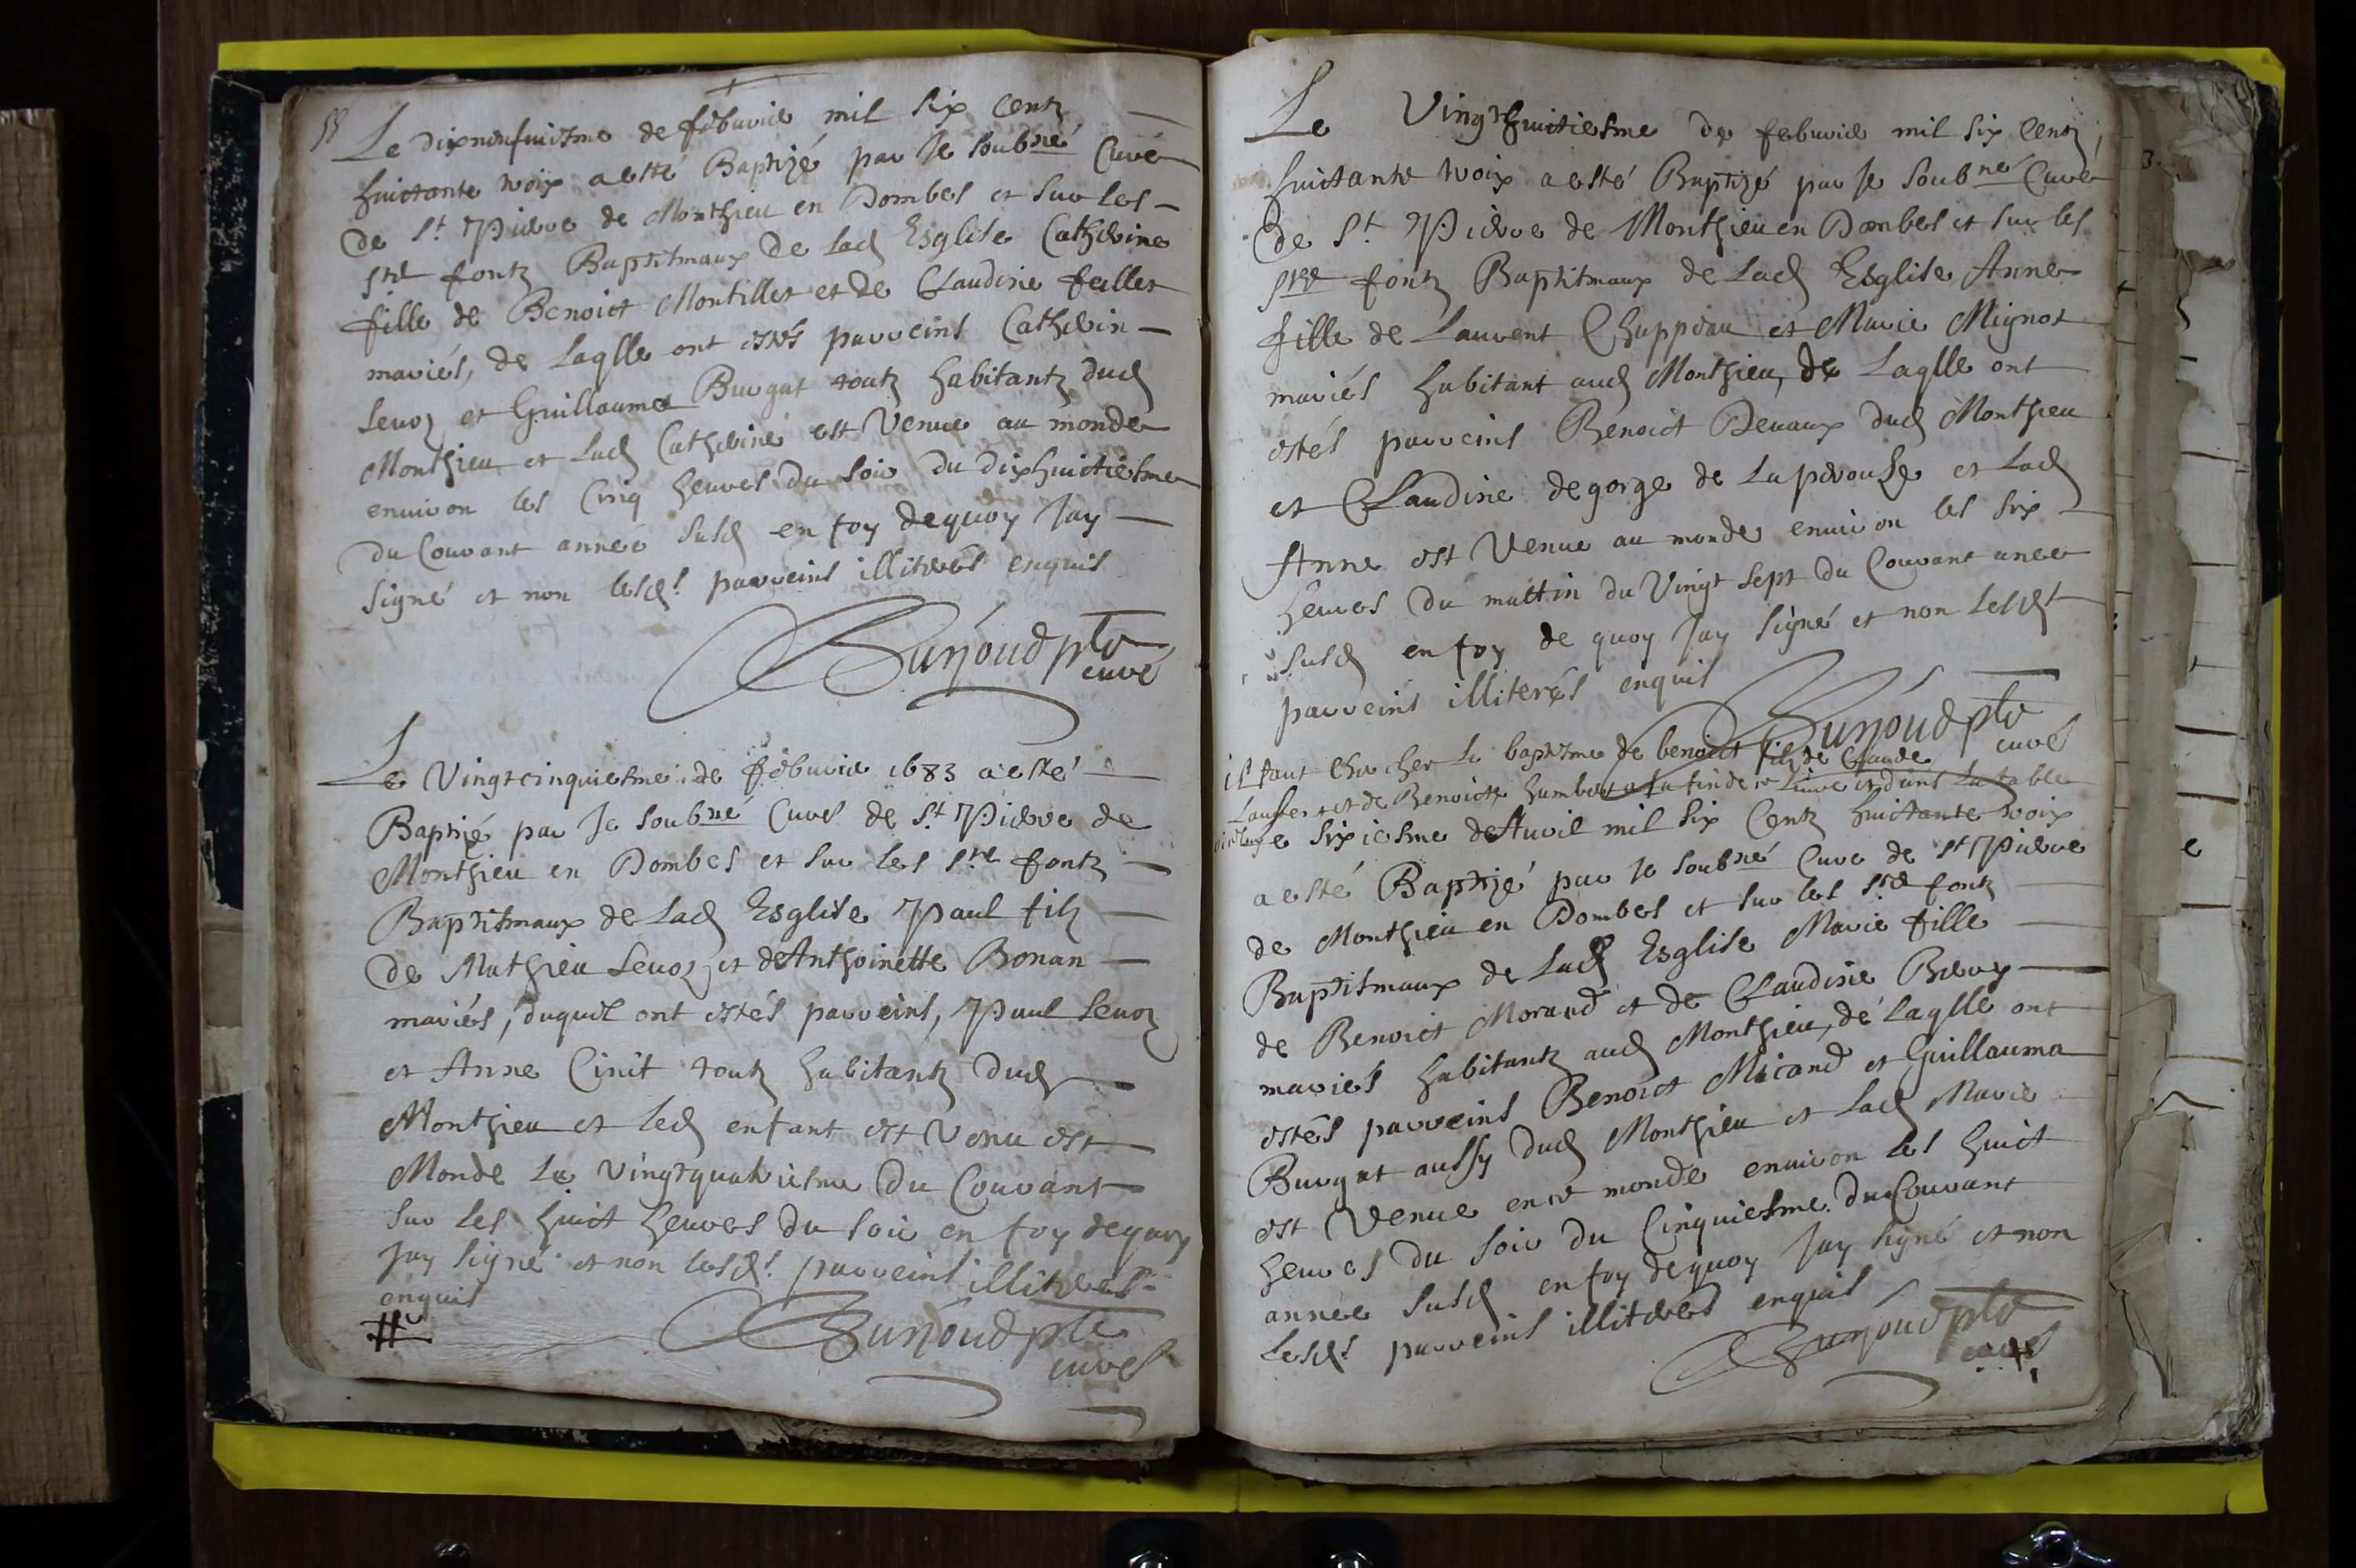 Le dixneufuiesme de febvrier mil six centz
huictante trois a esté Baptizé par Je soubné Curé
de St Pierre de Monthieu en Dombes et sur les
stes fontz Baptismaux de lad Esglise Catherine
fille de Benoict Montillet et de Claudine
mariés, de laqlle ont estés parreins Catherin
Levoz et Guillauma Burgat toutz habitantz dud
Monthieu et lad Catherine est Venue au monde
environ les Cinq heures du soir du dixhuictiesme
du Courant année susd en foy de quoy Jay
signé et non lesds parreins illiterés enquis
ptre
curé
Le Vingtcinquiesme de febvrier 1683 a esté
Baptizé par Je soubné Curé de St Pierre de
Monthieu en Dombes et sur les stes fontz
Baptismaux de lad Esglise Paul filz
de Mathieu Levoz et de Anthoinette Bonan
mariés, duquel ont estés parreins, Paul Levoz
et Anne Cinit toutz habitantz dud
Monthieu et led enfant est Venu est
Monde Le Vingtquatriesme du Courant
sur les huict heures du soir en foy de quoy
Jay signé et non lesds parreins illiterés
enquis
ptre
curé
Le Vingthuictiesme de febvrier mil six centz
huictante trois a esté Baptizé par Je soubné Curé
de St Pierre de Monthieu en Dombes et sur les
stes fontz Baptismaux de lad Esglise Anne
fille de Laurent Chappeau et Marie Mignot
mariés habitant aud Monthieu, de Laqlle ont
estés parreins Benoict Devaux dud Monthieu
et Claudine degorge de Laperouse et lad
Anne est Venue au monde environ les six
heures du mattin du Vingt sept du Courant anee
susd en foy de quoy Jay signé et non lesds
parreins illiterés enquis
ptre
curé
il faut chercher le baptesme de benoict filz de Claude
et de Benoicte humbert a la fin de ce Livre et dans la table
Le sixiesme de Avril mil six Centz huictante trois
a esté Baptizé par Je soubné Curé de St Pierre
de Monthieu en Dombes et sur les stes fontz
Baptismaux de Lad Esglise Marie fille
de Benoict Morand et de Claudine
mariés habitantz aud Monthieu, de Laqlle ont
estés parreins Benoict Micand et Guillauma
Burgat aussy dud Monthieu et Lad Marie
est Venue en ce monde environ les huict
heures du soir du Cinquiesme du Courant
année susd en foy de quoy Jay signé et non
lesds parreins illiterés enquis
ptre
curé